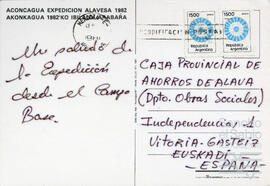 ACONCAGUA EXPEDICION ALAVESA 1982
AKONKAGUA 1982'KO IBILALDIA ARABARA
1500
1500
República Argentina
República Argentina
Un saludo de
la Expedición
desde el Campo
Base.
CAJA PROVINCIAL DE
AHORROS DE ALAVA
(Dpto. Obras Sociales)
Independencia, 1
VITORIA-GASTEIZ
EUSKADI
-ESPAÑA-